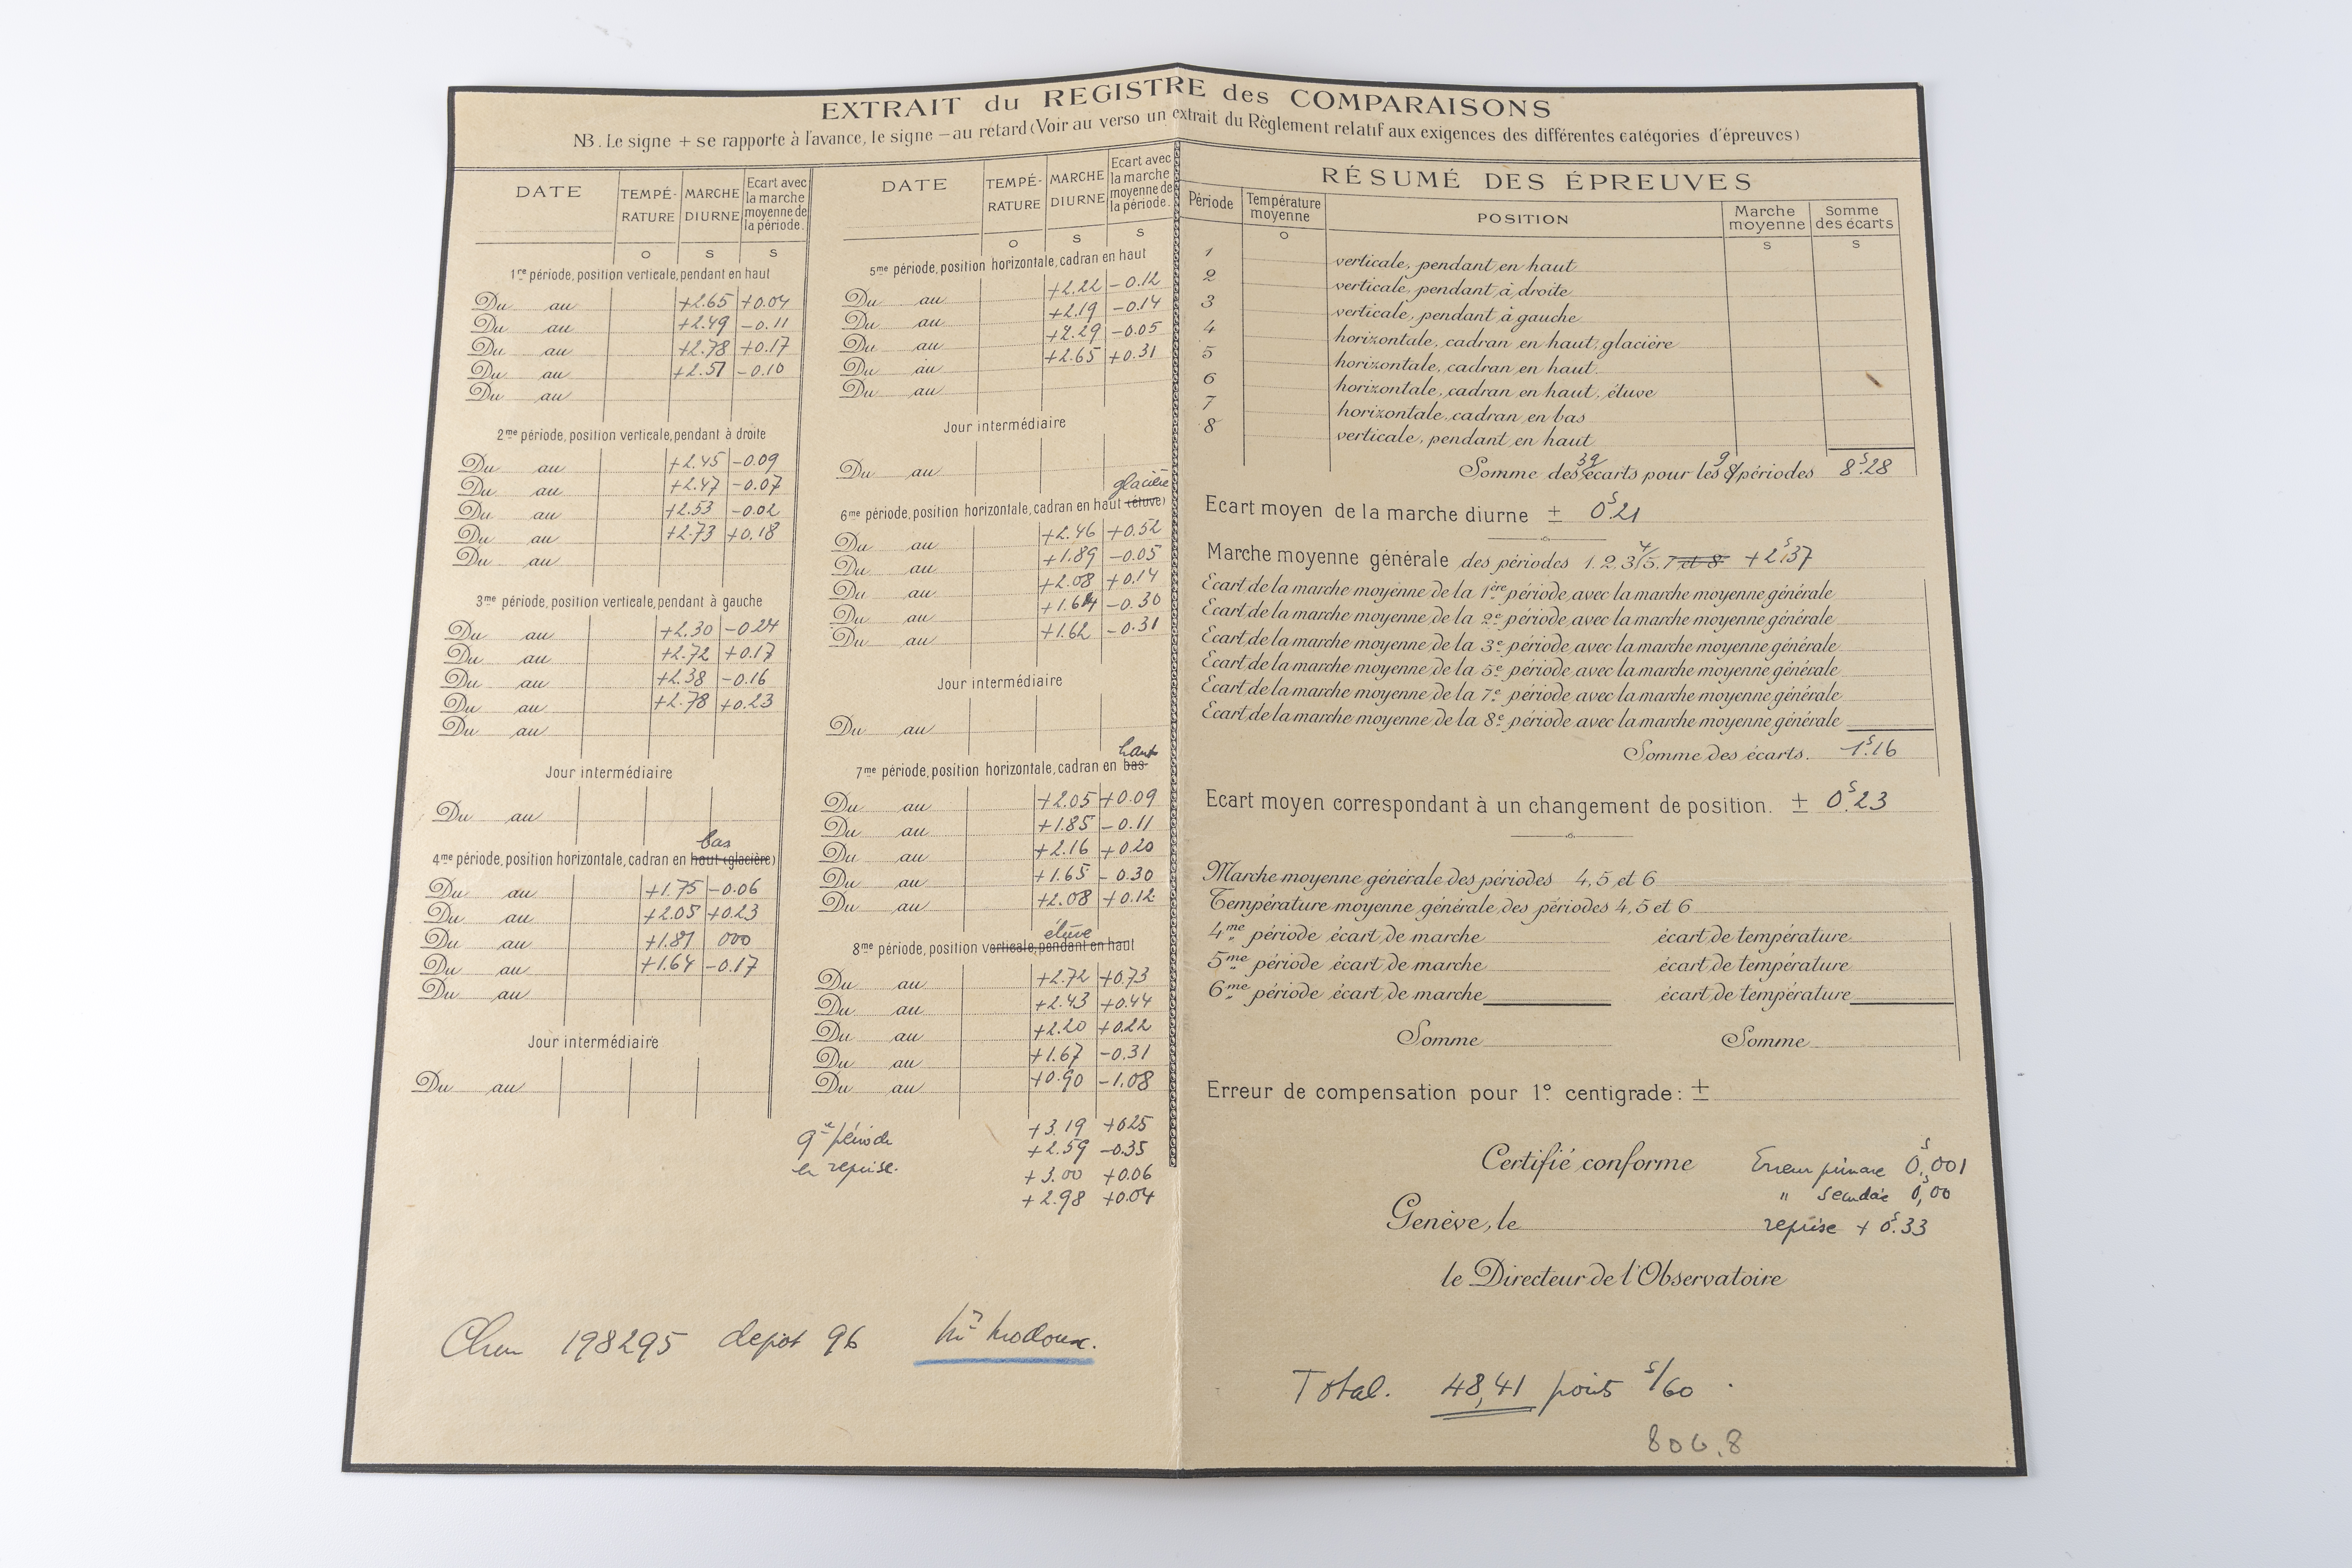 EXTRAIT du REGISTRE des COMPARAISONS
NB. Le signe + se rapporte à l'avance, le signe – au retard (Voir au verso un extrait du Règlement relatif aux exigences des différentes catégories d'épreuves)
DATE TEMPÉ-RATURE MARCHE DIURNE Ecart avec la marche moyenne de la période.
o s s
1re période, position verticale, pendant en haut
Du au +2.65 +0.04
Du au +2.49 -0.11
Du au +2.78 +0.17
Du au +2.51 -0.10
Du au
2me période, position verticale, pendant à droite
Du au +2.45 -0.09
Du au +2.47 -0.07
Du au +2.53 -0.02
Du au +2.73 +0.18
Du au
3me période, position verticale, pendant à gauche
Du au +2.30 -0.24
Du au +2.72 +0.17
Du au +2.38 -0.16
Du au +2.78 +0.23
Du au
Jour intermédiaire
Du au
bas
4me période, position horizontale, cadran en haut (glacière)
Du au +1.75 -0.06
Du au +2.05 +0.23
Du au +1.81 000
Du au +1.64 -0.17
Du au
Jour intermédiaire
Du au
DATE TEMPÉ-RATURE MARCHE DIURNE Ecart avec la marche moyenne de la période.
o s s
5me période, position horizontale, cadran en haut
Du au +2.22 -0.12
Du au +2.19 -0.14
Du au +2.29 -0.05
Du au +2.65 +0.31
Du au
Jour intermédiaire
Du au
glacière
6me période, position horizontale, cadran en haut (étuve)
Du au +2.46 +0.52
Du au +1.89 -0.05
Du au +2.08 +0.14
Du au +1.64 -0.30
Du au +1.62 -0.31
Jour intermédiaire
Du au
haut
7me période, position horizontale, cadran en bas
Du au +2.05 +0.09
Du au +1.85 -0.11
Du au +2.16 +0.20
Du au +1.65 -0.30
Du au +2.08 +0.12
étuve
8me période, position verticale, pendant en haut
Du au +2.72 +0.73
Du au +2.43 +0.44
Du au +2.20 +0.22
Du au +1.67 -0.31
Du au +0.90 -1.08
9e période +3.19 +025
+2.59 -0.35
en reprise. +3.00 +0.06
+2.98 +0.04
RÉSUMÉ DES ÉPREUVES
Période Température moyenne POSITION Marche moyenne Somme des écarts
o s s
1 verticale, pendant en haut
2 verticale, pendant à droite
3 verticale, pendant à gauche
4 horizontale, cadran en haut, glacière
5 horizontale, cadran en haut.
6 horizontale, cadran en haut, étuve
7 horizontale, cadran en bas
8 verticale, pendant en haut
39 9
Somme des écarts pour les 8 périodes 8s.28
Ecart moyen de la marche diurne ± 0s.21
Marche moyenne générale des périodes 1.2.3 4/5.7 et 8 +2s.37
Ecart de la marche moyenne de la 1ère période avec la marche moyenne générale
Ecart de la marche moyenne de la 2e période avec la marche moyenne générale
Ecart de la marche moyenne de la 3e période avec la marche moyenne générale
Ecart de la marche moyenne de la 5e période avec la marche moyenne générale
Ecart de la marche moyenne de la 7e période avec la marche moyenne générale
Ecart de la marche moyenne de la 8e période avec la marche moyenne générale
Somme des écarts. 1s.16
Ecart moyen correspondant à un changement de position. ± 0s.23
Marche moyenne générale des périodes 4, 5 et 6
Température moyenne générale des périodes 4, 5 et 6
4me période écart de marche écart de température
5me période écart de marche écart de température
6me période écart de marche écart de température
Somme Somme
Erreur de compensation pour 1° centigrade: ±
Certifié conforme Erreur primaire 0s,001
" secondaire 0s,00
Genève, le reprise + 0s.33
le Directeur de l'Observatoire
Chron 198295 depot 96 Mr Modoux.
Total. 48,41 points s/60
806.8